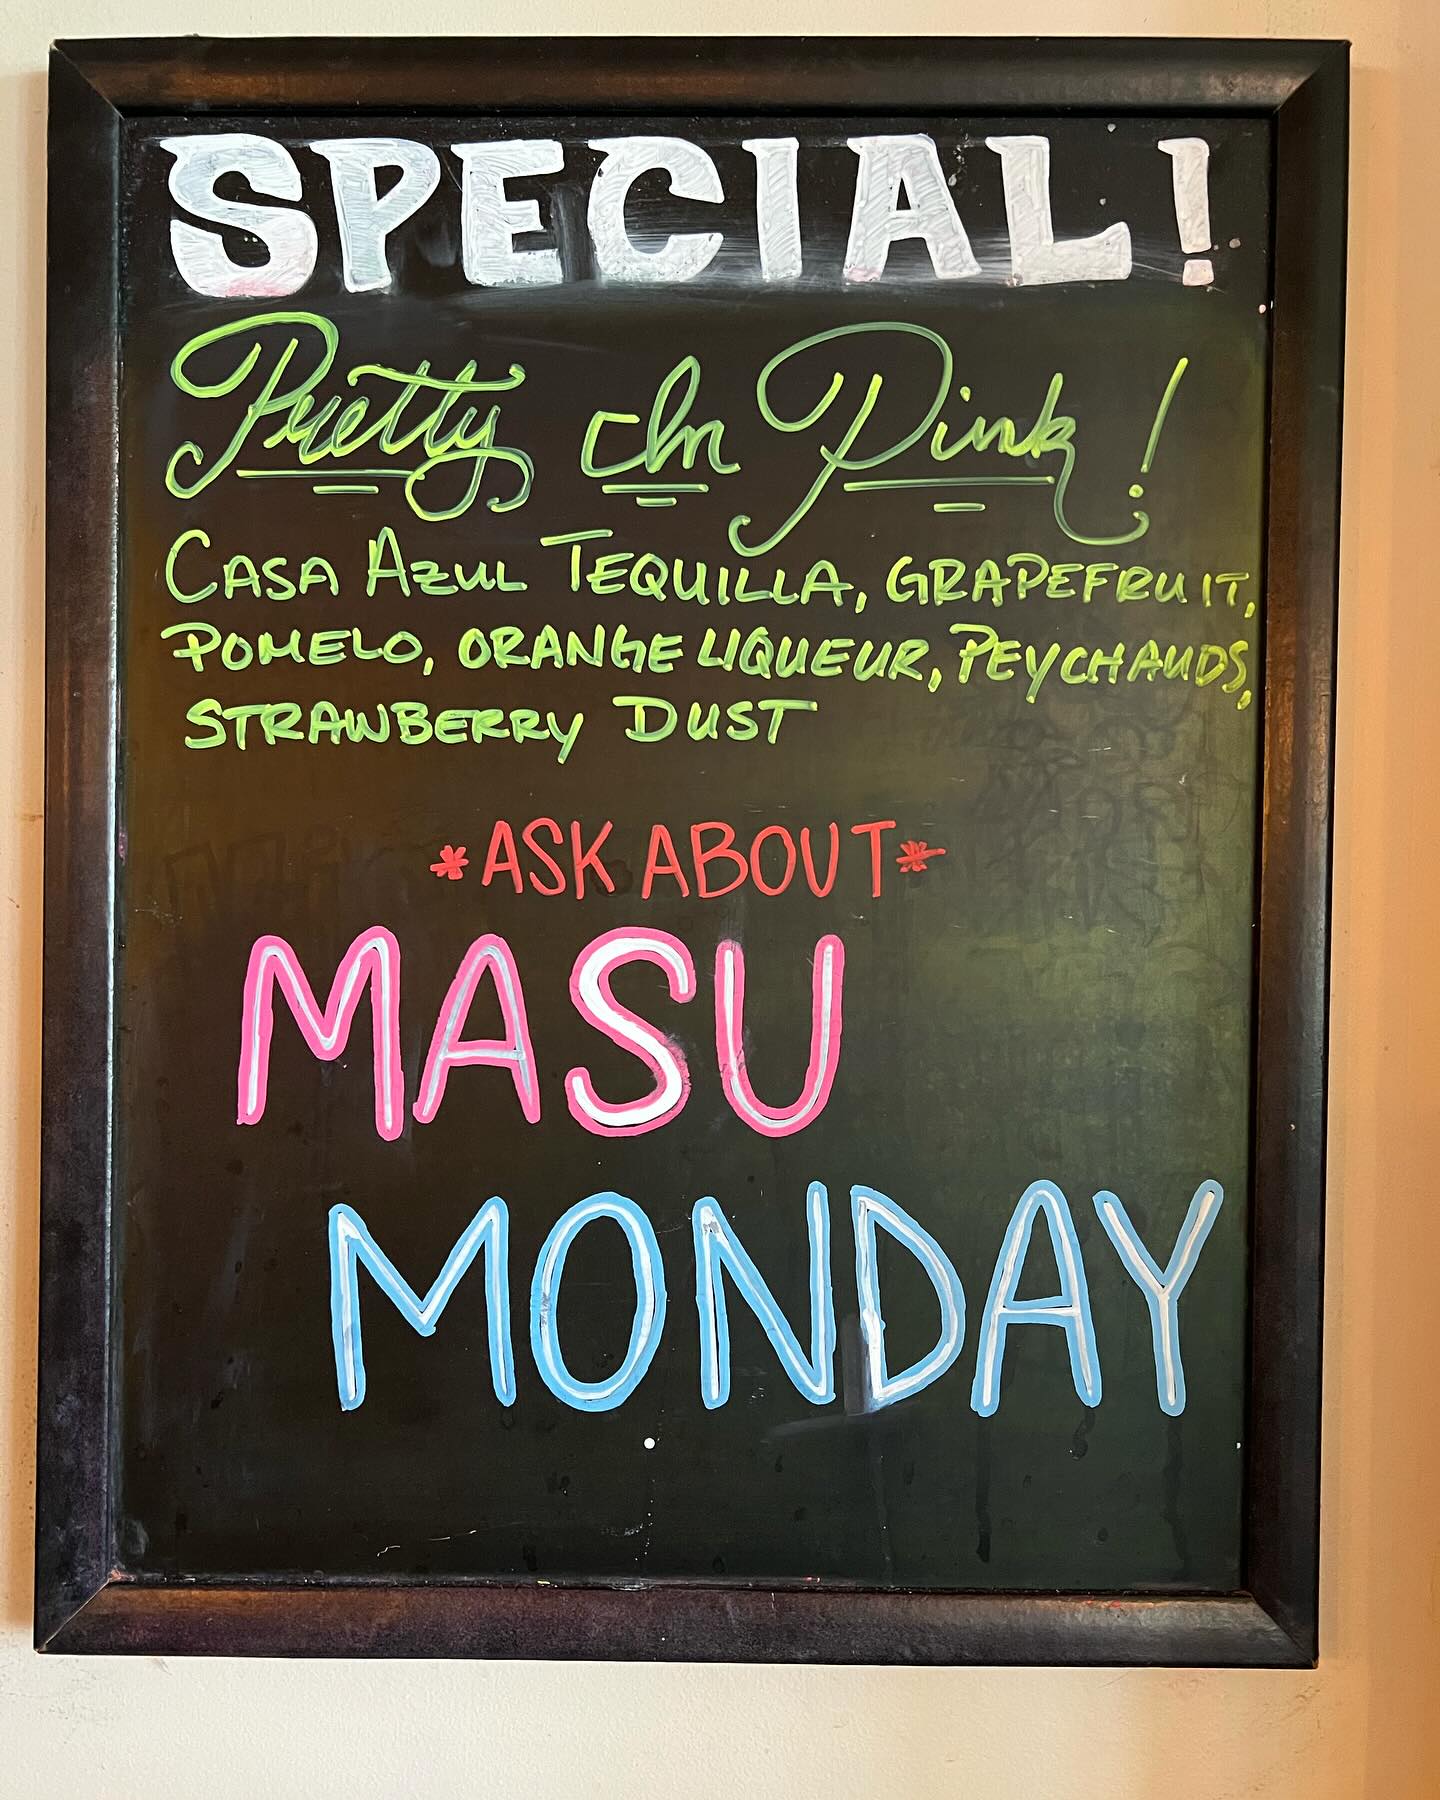 SPECIAL!
Pretty In Pink!
CASA AZUL TEQUILLA, GRAPEFRUIT,
POMELO, ORANGE LIQUEUR, PEYCHAUDS,
STRAWBERRY DUST
*ASK ABOUT*
MASU
MONDAY